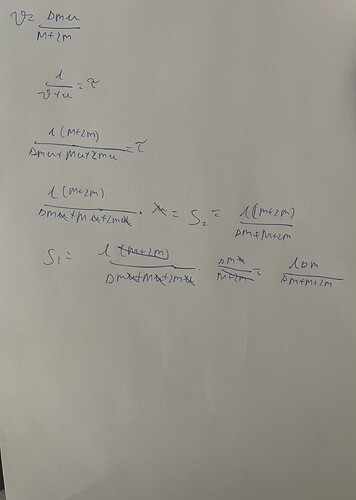 ϑ = Dmu / (M+2m)
l / (ϑ+u) = τ
l(M+2m) / (Dmu+Mu+2mu) = τ
l(M+2m) / (Dmu+Mu+2mu) · u = S₂ = l(M+2m) / (Dm+M+2m)
S₁ = l(M+2m) / (Dmu+Mu+2mu) · Dmu / (M+2m) = lDm / (Dm+M+2m)